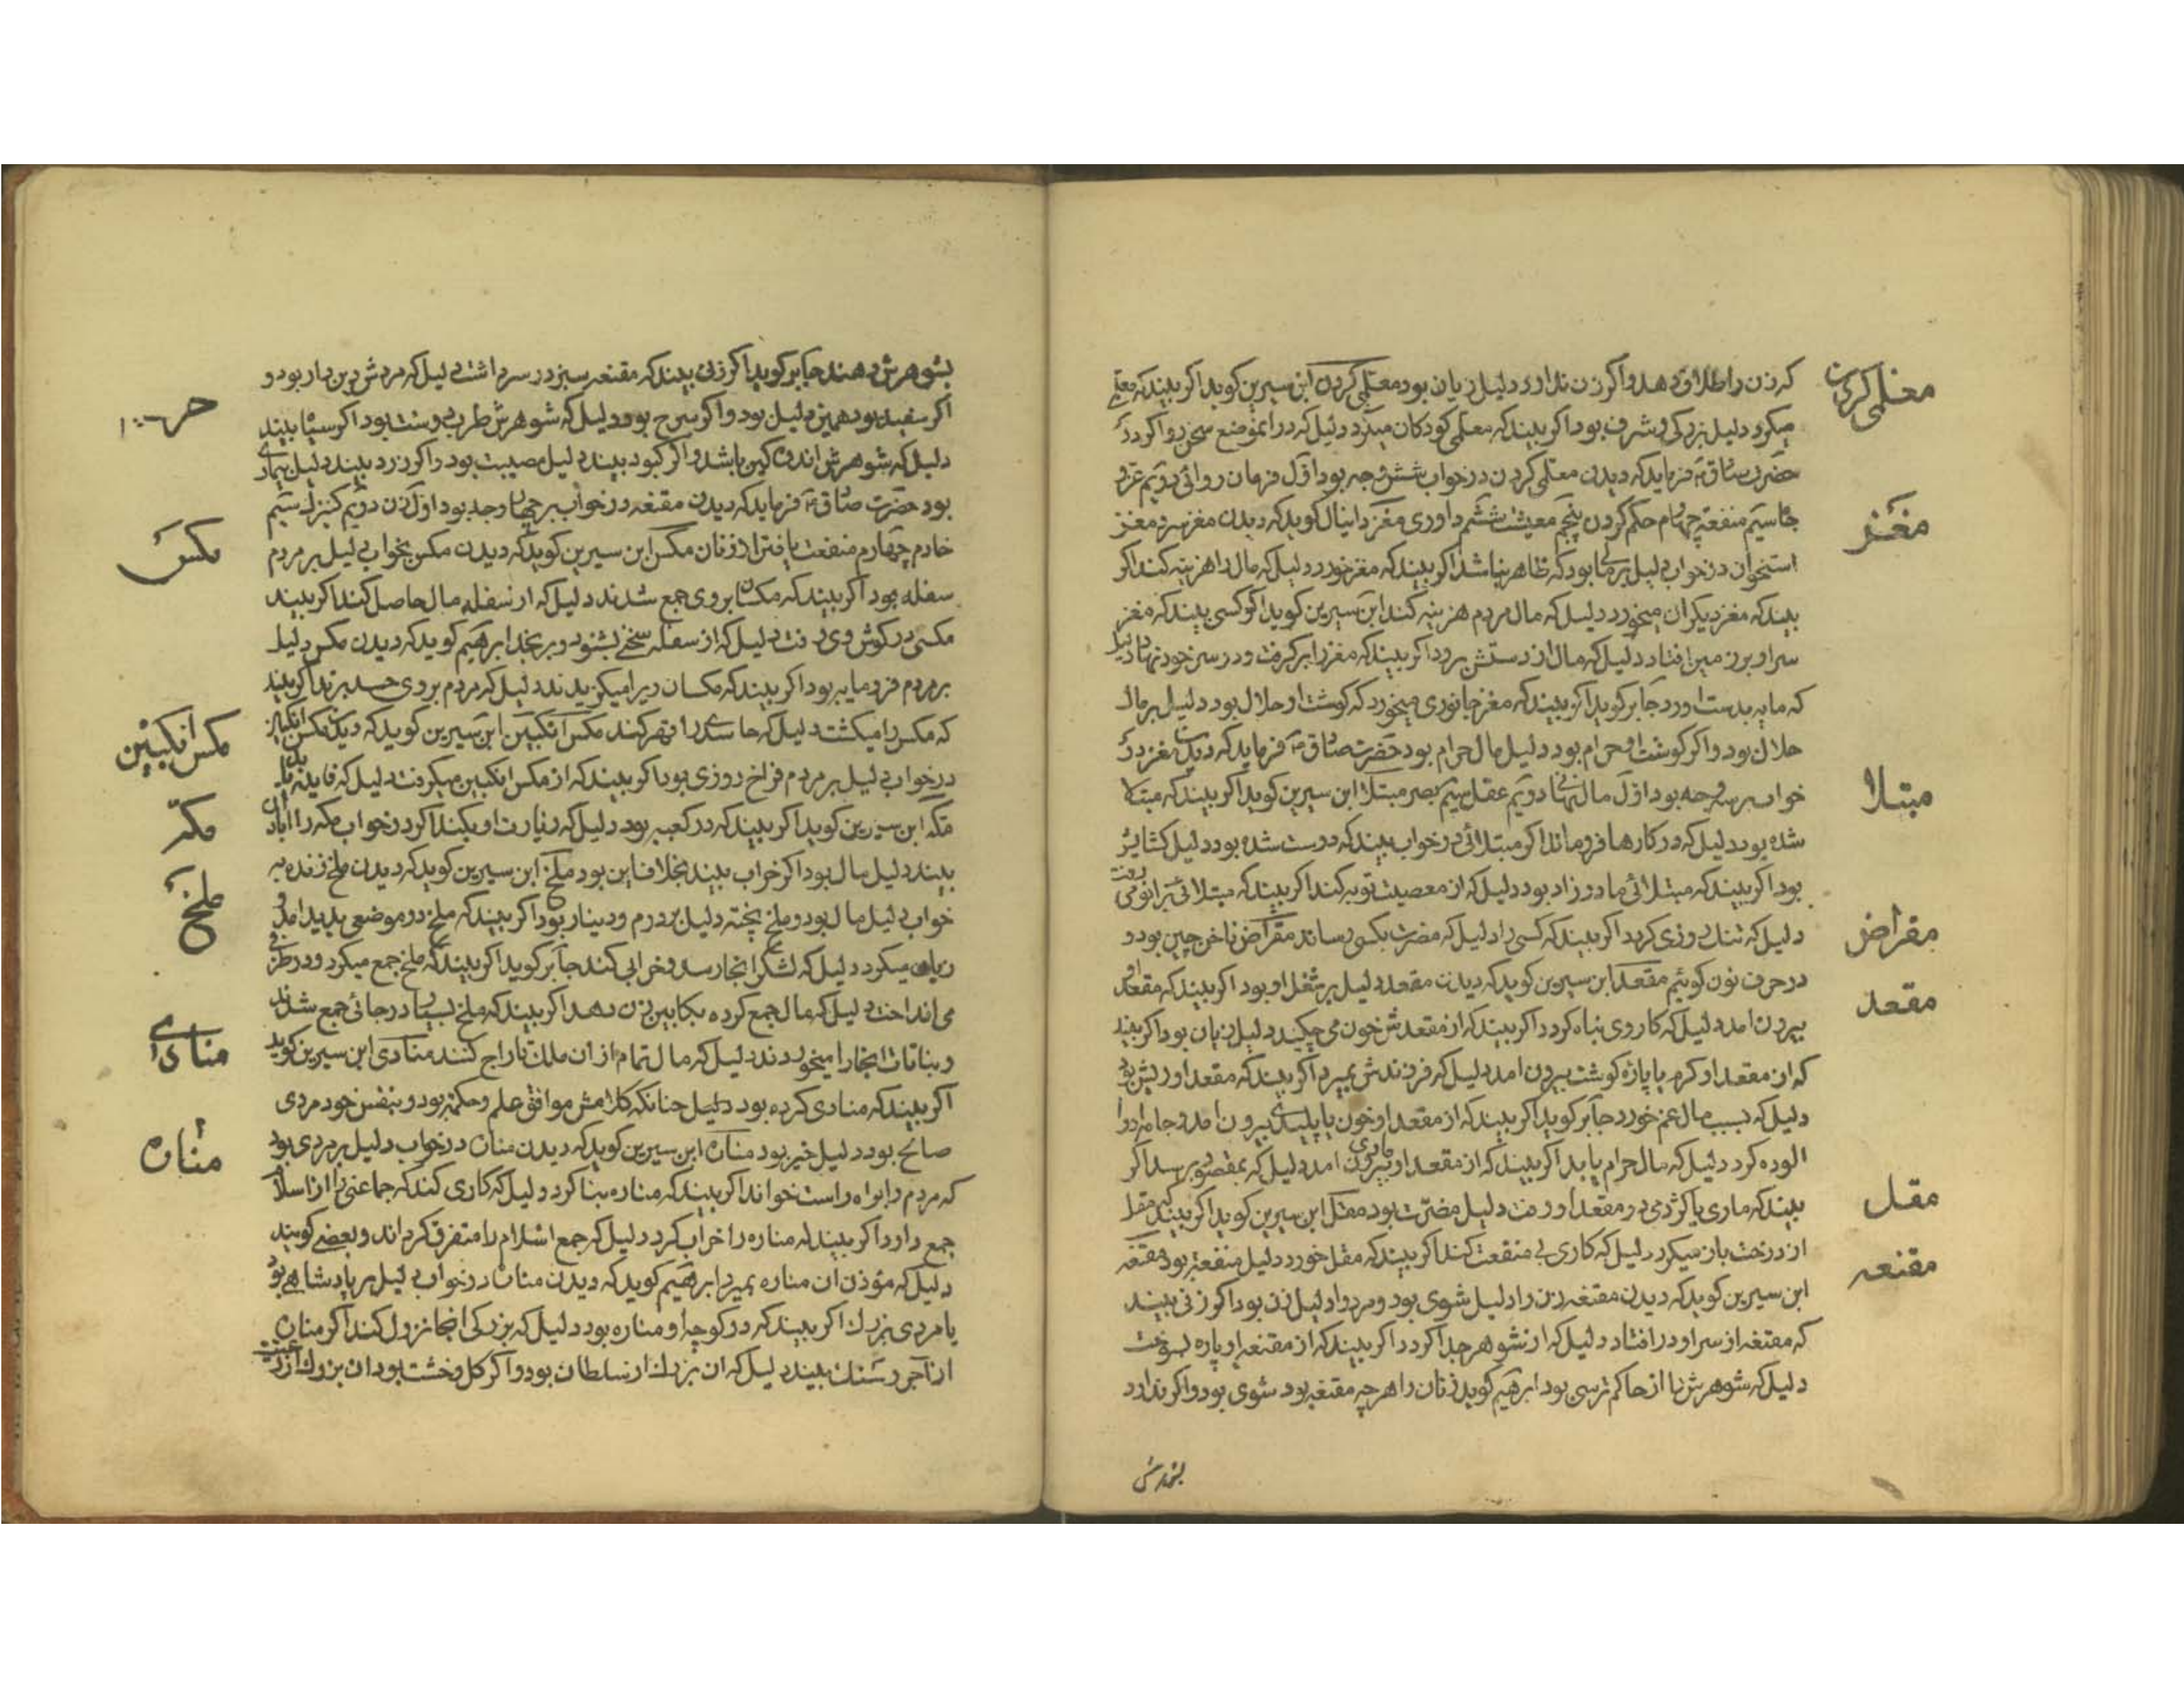 که زن را طلاق دهد و اگر زن ندارد دلیل زیان بود معلمی کردن ابن سیرین کوید اکر بیند که معلمی
معلمی کردن
میکرد دلیل بزرکی و شرف بود اکر بیند که معلمی کودکان میکرد دلیل که در انموضع
حضرت صادق فرماید که دیدن معلمی کردن در خواب شش وجه بود اول فرمان روائی دویم عز و
جاه سیم منفعة چهارم حکم کردن پنجم معیشت ششم داوری مغز دانیال کوید که دیدن مغز سر و مغز
مغز
استخوان در خواب دلیل بر مالی بود که ظاهر نباشد اکر بیند که مغز خورد دلیل که مال را هزینه کند اکر
بیند که مغز دیکران میخورد دلیل که مال مردم هزینه کند ابن سیرین کوید اکر کسی بیند که مغز
سر او بر زمین افتاد دلیل که مال از دستش برود اکر بیند که مغز را برکرفت و در سر خود نهاد دلیل
که مایه بدست اورد جابر کوید اکر بیند که مغز جانوری میخورد که کوشت او حلال بود دلیل بر مال
حلال بود و اکر کوشت او حرام بود دلیل مال حرام بود حضرت صادق فرماید که دیدن مغز در
خواب بر سه وجه بود اول مال نهانی دویم عقل سیم بصر مبتلا ابن سیرین کوید اکر بیند که مبتلا
مبتلا
شده بود دلیل که در کارها فرو ماند اکر مبتلائی در خواب بیند که درست شده بود دلیل کشایش
بود اکر بیند که مبتلائی مادرزاد بود دلیل که از معصیت توبه کند اکر بیند که مبتلائی بزانو می رفت
دلیل که تنک روزی کردد اکر بیند که کسی را دلیل که مضرت بکسی رساند مقراض ناخن چین بود و
مقراض
در حرف نون کوئیم مقعد ابن سیرین کوید که دیدن مقعد دلیل بر شغل او بود اکر بیند که مقعد او
مقعد
بیرون امد دلیل که کار وی تباه کردد اکر بیند که از مقعدش خون می چکید دلیل زیان بود اکر بیند
که از مقعد او کرم یا پاره کوشت بیرون امد دلیل که فرزندش بمیرد اکر بیند که مقعد او ریش بود
دلیل که بسبب مال غم خورد جابر کوید اکر بیند که از مقعد او خون یا پلیدی بیرون امد و جامه او را
الوده کرد دلیل که مال حرام یابد اکر بیند که از مقعد او ماری بیرون امد دلیل که بمقصود برسد اکر
بیند که ماری یا کژدمی در مقعد او رفت دلیل مضرت بود مقل ابن سیرین کوید اکر بیند که مقل
مقل
از درخت باز میکرد دلیل که کاری بی منفعت کند اکر بیند که مقل خورد دلیل منفعة بود مقنعه
مقنعه
ابن سیرین کوید که دیدن مقنعه زن را دلیل شوی بود و مرد را دلیل زن بود اکر زنی بیند
که مقنعه از سر او در افتاد دلیل که از شوهر جدا کردد اکر بیند که از مقنعه او پاره بسوخت
دلیل که شوهرش را از حاکم ترسی بود ابرهیم کوید زنان را هر چه مقنعه بود شوی بود و اکر ندارد
بشوهرش
بشوهرش دهند جابر کوید اکر زنی بیند که مقنعه سبز در سر داشت دلیل که مردش دین دار بود و
اکر سفید بود همین دلیل بود و اکر سرخ بود دلیل که شوهرش طرب دوست بود اکر سیاه بیند
دلیل که شوهرش اندوه کین باشد و اکر کبود بیند دلیل مصیبت بود و اکر زرد بیند دلیل بیماری
بود حضرت صادق فرماید که دیدن مقنعه در خواب بر چهار وجه بود اول زن دویم کنیزک سیم
خادم چهارم منفعت یافتن از زنان مکس ابن سیرین کوید که دیدن مکس بخواب دلیل بر مردم
مکس
سفله بود اکر بیند که مکسان بر وی جمع شدند دلیل که از سفله مال حاصل کند اکر بیند
مکسی در کوش وی رفت دلیل که از سفله سخنی بشنود و برنجد ابرهیم کوید که دیدن مکس دلیل
بر مردم فرومایه بود اکر بیند که مکسان ویرا میکزیدند دلیل که مردم بر وی حسد برند اکر بیند
که مکس را میکشت دلیل که حاسد را قهر کند مکس انکبین ابن سیرین کوید که دیدن مکس انکبین
مکس انکبین
در خواب دلیل بر مردم فراخ روزی بود اکر بیند که از مکس انکبین میکرفت دلیل که فایده یابد
مکه ابن سیرین کوید اکر بیند که در کعبه بود دلیل که زیارت او بکند اکر در خواب مکه را ابادان
مکه
بیند دلیل مال بود اکر خراب بیند بخلاف این بود ملخ ابن سیرین کوید که دیدن ملخ زنده به
ملخ
خواب دلیل مال بود و ملخ پخته دلیل بر درم و دینار بود اکر بیند که ملخ در موضعی پدید امد و
زیان میکرد دلیل که لشکر انجا رسد و خرابی کند جابر کوید اکر بیند که ملخ جمع میکرد و در ظرفی
می انداخت دلیل که مال جمع کرده بکابین زن دهد اکر بیند که ملخ بسیار در جائی جمع شدند
و نباتات انجا را میخوردند دلیل که مال تمام از ان ملک تاراج کنند منادی ابن سیرین کوید
منادی
اکر بیند که منادی کرده بود دلیل چنانکه کلامش موافق علم و حکمة بود و بنفس خود مردی
صالح بود دلیل خیر بود مناره ابن سیرین کوید که دیدن مناره در خواب دلیل بر مردی بود
مناره
که مردم را براه راست خواند اکر بیند که مناره بنا کرد دلیل که کاری کند که جماعتی را از اسلام
جمع دارد اکر بیند که مناره را خراب کرد دلیل که جمع اسلام را متفرق کرداند و بعضی کویند
دلیل که مؤذن ان مناره بمیرد ابرهیم کوید که دیدن مناره در خواب دلیل بر پادشاهی بود
یا مردی بزرک اکر بیند که در کوچه او مناره بود دلیل که بزرکی انجا نزول کند اکر مناره
از آجر و سنک بیند دلیل که ان بزرک از سلطان بود و اکر کل و خشت بود ان بزرک از